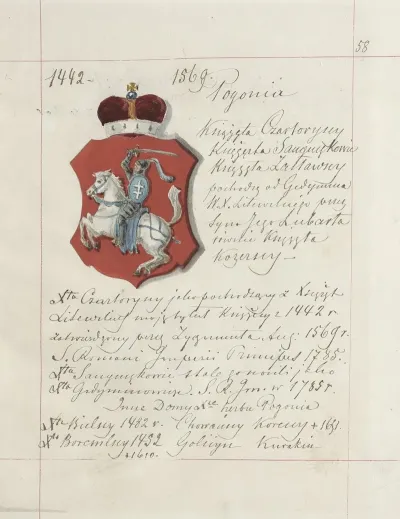 58
1442 - 1569.
Pogonia
Książęta Czartoryscy
Książęta Sanguszkowie
Książęta Zasławscy
pochodzą od Gedymina
W. X. Litewskiego przez
syna Jego Lubarta
Książęta
Xta Czartoryscy jako pochodzący z Książąt
Litewskich mają tytuł Książęcy z 1442 r
zatwierdzony przez Zygmunta Aug. 1569 r.
S. Romani Imperii Princeps 1785.
Xta Sanguszkowie
S. R. Im. w 1785 r.
Inne Domy Xce herbu Pogonia
Xta Bielscy 1452 r. Chowańscy Koreccy + 1651
Xta 1432 Golicyn Kurakin
+ 1610.